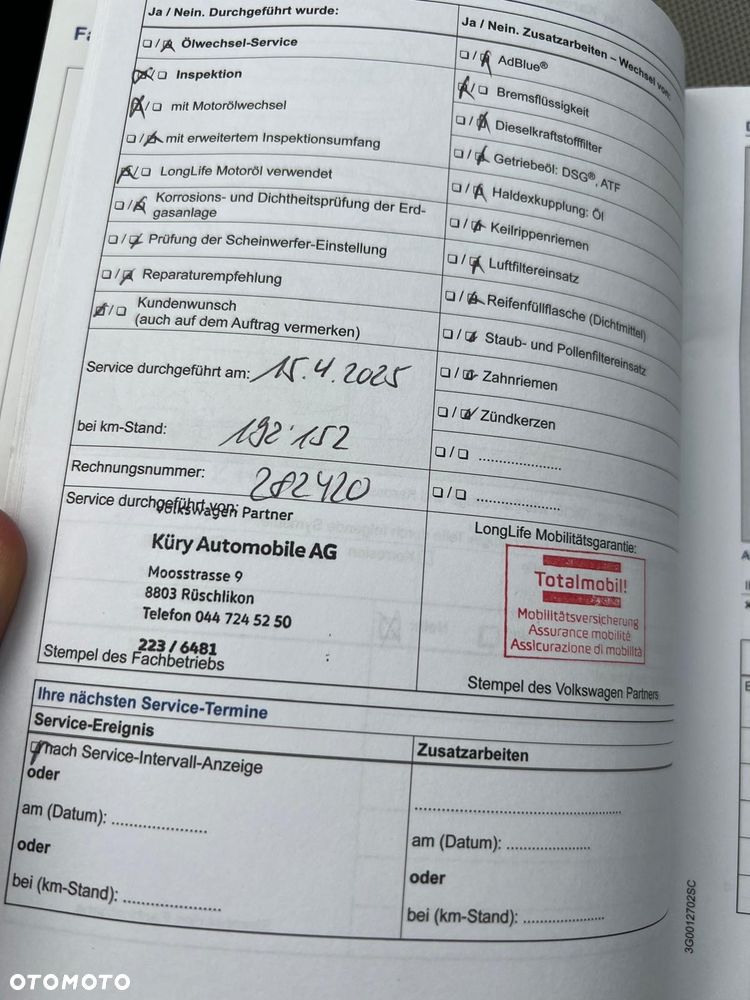 Ja / Nein. Durchgeführt wurde:
Ölwechsel-Service
Inspektion
mit Motorölwechsel
mit erweitertem Inspektionsumfang
LongLife Motoröl verwendet
Korrosions- und Dichtheitsprüfung der Erd-
gasanlage
Prüfung der Scheinwerfer-Einstellung
Reparaturempfehlung
Kundenwunsch
(auch auf dem Auftrag vermerken)
Ja / Nein. Zusatzarbeiten – Wechsel von:
AdBlue®
Bremsflüssigkeit
Dieselkraftstofffilter
Getriebeöl: DSG®, ATF
Haldexkupplung: Öl
Keilrippenriemen
Luftfiltereinsatz
Reifenfüllflasche (Dichtmittel)
Staub- und Pollenfiltereinsatz
Zahnriemen
Zündkerzen
Service durchgeführt am: 15.4.2025
bei km-Stand: 192'152
Rechnungsnummer: 282420
Service durchgeführt von:
Volkswagen Partner
Küry Automobile AG
Moosstrasse 9
8803 Rüschlikon
Telefon 044 724 52 50
223 / 6481
Stempel des Fachbetriebs
LongLife Mobilitätsgarantie:
Totalmobil!
Mobilitätsversicherung
Assurance mobilité
Assicurazione di mobilità
Stempel des Volkswagen Partners
Ihre nächsten Service-Termine
Service-Ereignis
nach Service-Intervall-Anzeige
oder
am (Datum): ....................
oder
bei (km-Stand): ....................
Zusatzarbeiten
am (Datum): ....................
oder
bei (km-Stand): ....................
3G0012702SC
OTOMOTO